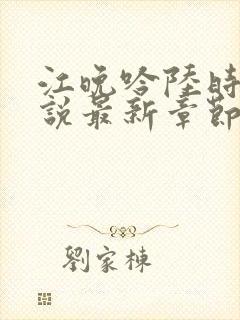 江晚吟陸時
說最新章節
劉家棟